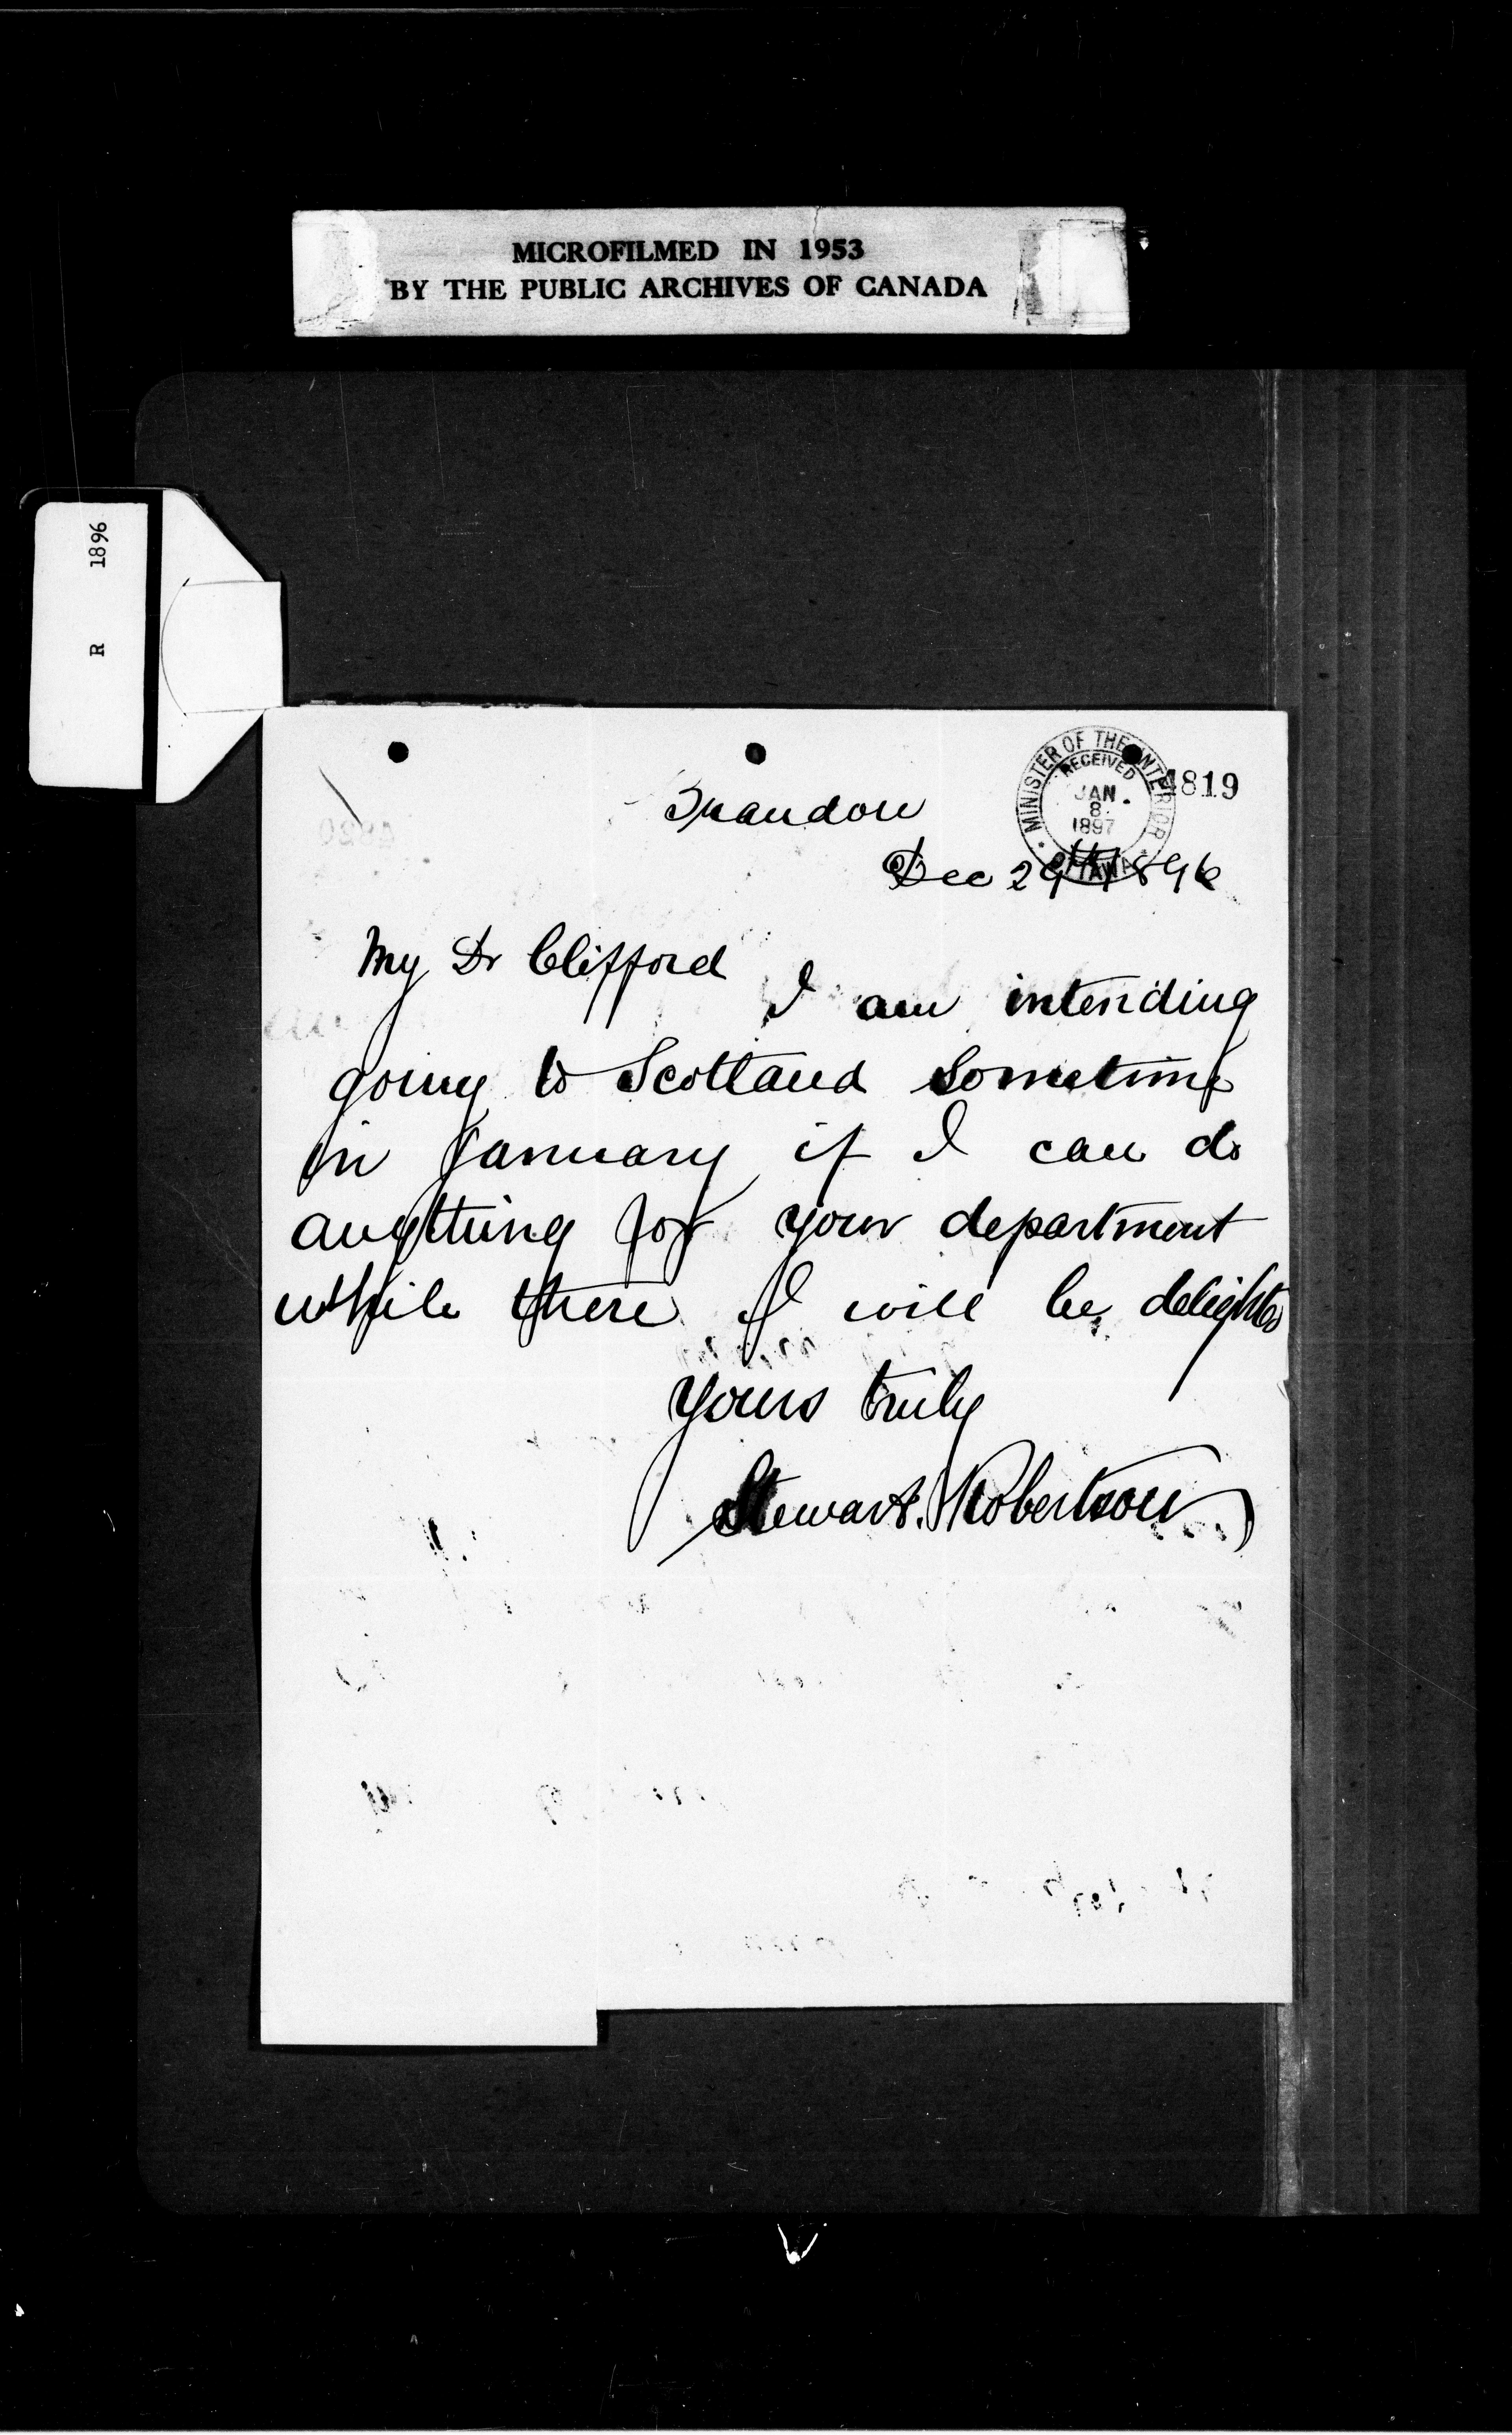 MICROFILMED IN 1953
BY THE PUBLIC ARCHIVES OF CANADA
R 1896
MINISTER OF THE INTERIOR
RECEIVED
JAN.
8.
1897
OTTAWA
4819
Brandon
Dec 29th 1896
My Dr Clifford
I am intending
going to Scotland sometime
in January if I can do
anything for your department
while there I will be delighted
Yours truly
Stewart. Robertson